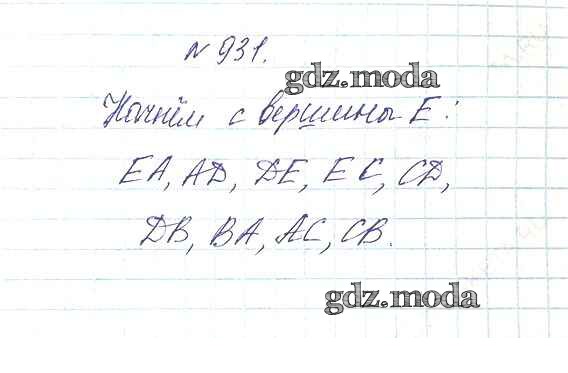 № 931.
gdz.moda
Начнём с вершины E:
EA, AD, DE, EC, CD,
DB, BA, AC, CB.
gdz.moda